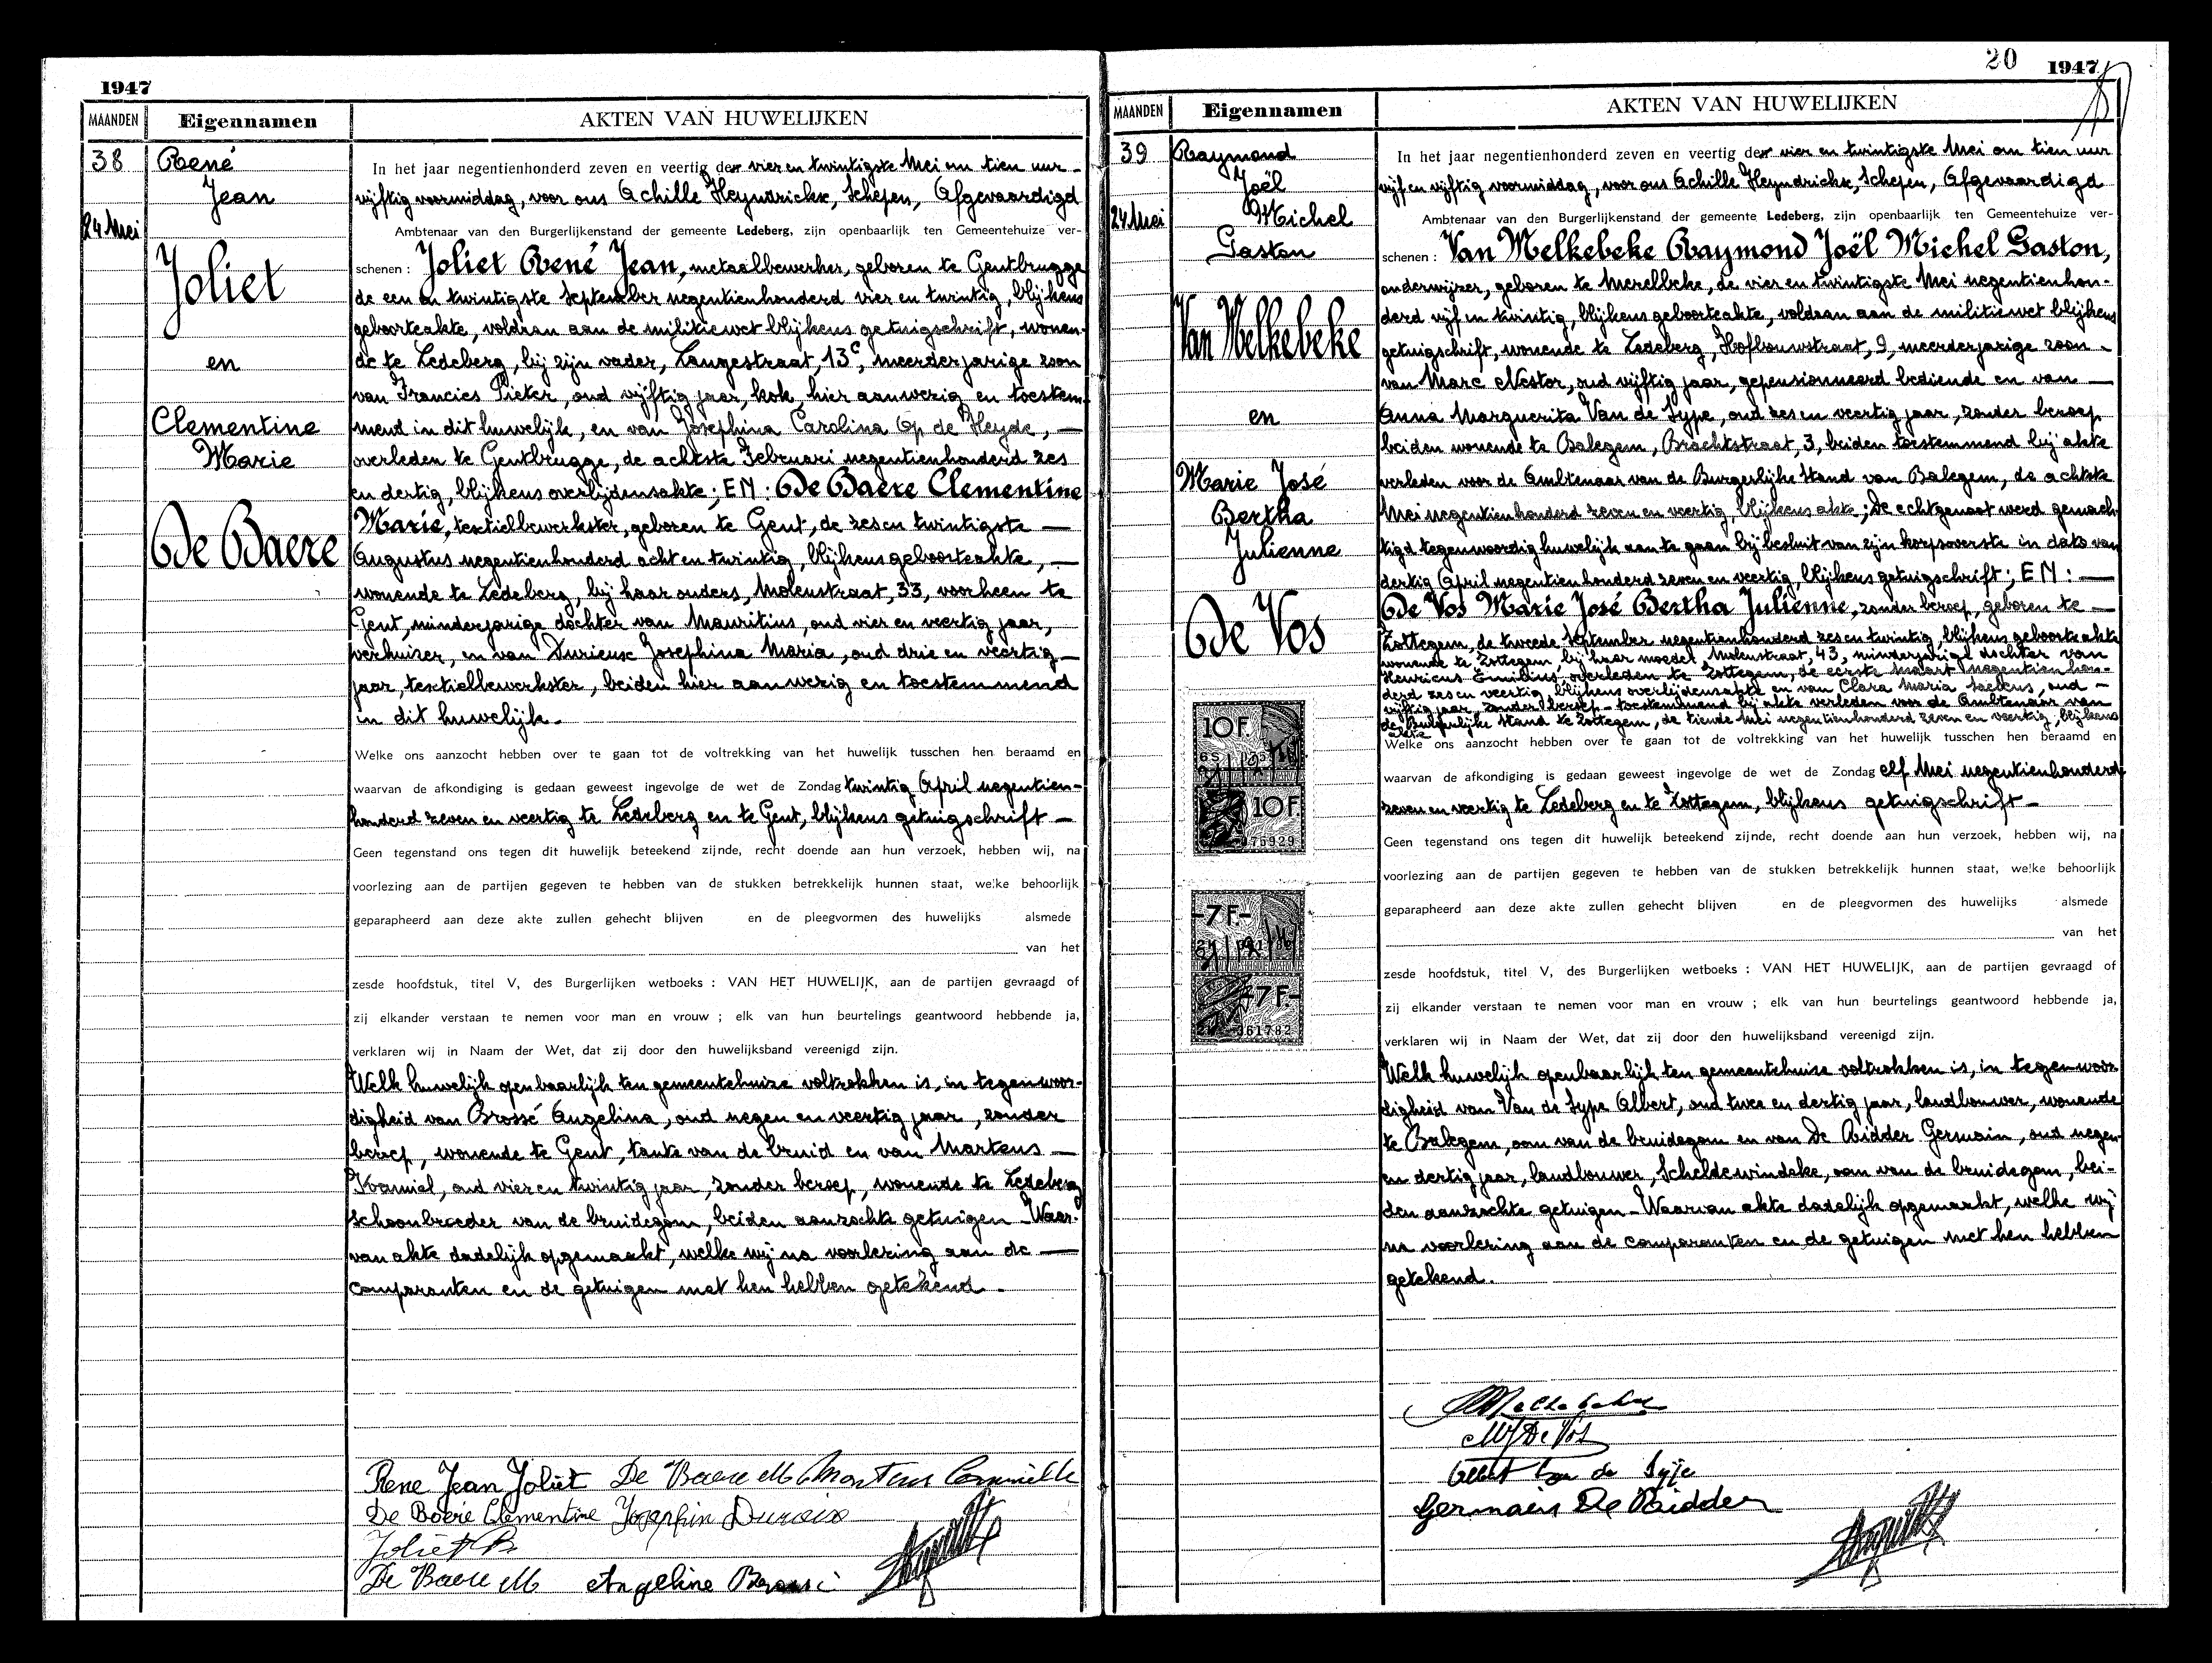 1947
MAANDEN
Eigennamen
AKTEN VAN HUWELIJKEN
38
24 Mei
René
Jean
Joliet
en
Clementine
Marie
De Baere
In het jaar negentienhonderd zeven en veertig der vier en twintigste Mei om tien uur
vijftig voormiddag, voor ons Achille Heyndrickx, Schepen, Afgevaardigd
Ambtenaar van den Burgerlijkenstand der gemeente Ledeberg, zijn openbaarlijk ten Gemeentehuize ver-
schenen : Joliet René Jean, metaalbewerker, geboren te Gentbrugge
de een en twintigste September negentienhonderd vier en twintig, blijkens
geboorteakte, voldaan aan de militiewet blijkens getuigschrift, wonen-
de te Ledeberg, bij zijn vader, Langestraat, 13c, meerderjarige zoon
van Francies Pieter, oud vijftig jaar, kok, hier aanwezig en toestem-
mend in dit huwelijk, en van Josephina Carolina Op de Heyde, —
overleden te Gentbrugge, de achtste Februari negentienhonderd zes
en dertig, blijkens overlijdensakte; EN : De Baere Clementine
Marie, textielbewerkster, geboren te Gent, de zes en twintigste —
Augustus negentienhonderd acht en twintig, blijkens geboorteakte, —
wonende te Ledeberg, bij haar ouders, Molenstraat, 33, voorheen te
Gent, minderjarige dochter van Mauritius, oud vier en veertig jaar,
verhuizer, en van Durieux Josephina Maria, oud drie en veertig —
jaar, textielbewerkster, beiden hier aanwezig en toestemmend
in dit huwelijk.
Welke ons aanzocht hebben over te gaan tot de voltrekking van het huwelijk tusschen hen beraamd en
waarvan de afkondiging is gedaan geweest ingevolge de wet de Zondag twintig April negentien-
honderd zeven en veertig te Ledeberg en te Gent, blijkens getuigschrift —
Geen tegenstand ons tegen dit huwelijk beteekend zijnde, recht doende aan hun verzoek, hebben wij, na
voorlezing aan de partijen gegeven te hebben van de stukken betrekkelijk hunnen staat, welke behoorlijk
geparapheerd aan deze akte zullen gehecht blijven en de pleegvormen des huwelijks alsmede
van het
zesde hoofdstuk, titel V, des Burgerlijken wetboeks : VAN HET HUWELIJK, aan de partijen gevraagd of
zij elkander verstaan te nemen voor man en vrouw ; elk van hun beurtelings geantwoord hebbende ja,
verklaren wij in Naam der Wet, dat zij door den huwelijksband vereenigd zijn.
Welk huwelijk openbaarlijk ten gemeentehuize voltrokken is, in tegenwoor-
digheid van Brossé Angelina, oud negen en veertig jaar, zonder
beroep, wonende te Gent, tante van de bruid en van Martens —
Kamiel, oud vier en twintig jaar, zonder beroep, wonende te Ledeberg
schoonbroeder van de bruidegom, beiden aanzochte getuigen — Waar-
van akte dadelijk opgemaakt, welke wij na voorlezing aan de —
comparanten en de getuigen met hen hebben getekend.
Rene Jean Joliet De Baere M Martens Camielle
De Baere Clementine Josephin Durieix
Joliet P.
De Baere M Angeline
20 1947
MAANDEN
Eigennamen
AKTEN VAN HUWELIJKEN
39
24 Mei
Raymond
Joël
Michel
Gaston
Van Melkebeke
en
Marie José
Bertha
Julienne
De Vos
10 F.
10 F.
75929
-7 F.-
-7 F-
361782
In het jaar negentienhonderd zeven en veertig der vier en twintigste Mei om tien uur
vijf en vijftig voormiddag, voor ons Achille Heyndrickx, Schepen, Afgevaardigd
Ambtenaar van den Burgerlijkenstand der gemeente Ledeberg, zijn openbaarlijk ten Gemeentehuize ver-
schenen : Van Melkebeke Raymond Joël Michel Gaston,
onderwijzer, geboren te Merelbeke, de vier en twintigste Mei negentienhon-
derd vijf en twintig, blijkens geboorteakte, voldaan aan de militiewet blijkens
getuigschrift, wonende te Ledeberg, Hofbouwstraat, 9, meerderjarige zoon —
van Marc Nestor, oud vijftig jaar, gepensionneerd bediende en van —
Anna Marguerita Van de Sype, oud zes en veertig jaar, zonder beroep
beiden wonende te Balegem, Brachtstraat, 3, beiden toestemmend bij akte
verleden voor de Ambtenaar van de Burgerlijke Stand van Balegem, de achtste
Mei negentienhonderd zeven en veertig, blijkens akte; De echtgenoot werd gemach-
tigd tegenwoordig huwelijk aan te gaan bij besluit van zijn korpsoverste in dato van
dertig April negentienhonderd zeven en veertig, blijkens getuigschrift; EN : —
De Vos Marie José Bertha Julienne, zonder beroep, geboren te —
Zottegem, de tweede September negentienhonderd zes en twintig, blijkens geboorteakte
wonende te Zottegem, bij haar moeder, Molenstraat, 43, minderjarige dochter van
Henricus Emilius, overleden te Zottegem, de eerste Maart negentienhon-
derd zes en veertig, blijkens overlijdensakte en van Clara Maria Saelens, oud —
vijftig jaar, zonder beroep — toestemmend bij akte verleden voor de Ambtenaar van
de Burgerlijke Stand te Zottegem, de tiende Mei negentienhonderd zeven en veertig, blijkens
akte
Welke ons aanzocht hebben over te gaan tot de voltrekking van het huwelijk tusschen hen beraamd en
waarvan de afkondiging is gedaan geweest ingevolge de wet de Zondag elf Mei negentienhonderd
zeven en veertig te Ledeberg en te Zottegem, blijkens getuigschrift —
Geen tegenstand ons tegen dit huwelijk beteekend zijnde, recht doende aan hun verzoek, hebben wij, na
voorlezing aan de partijen gegeven te hebben van de stukken betrekkelijk hunnen staat, welke behoorlijk
geparapheerd aan deze akte zullen gehecht blijven en de pleegvormen des huwelijks alsmede
van het
zesde hoofdstuk, titel V, des Burgerlijken wetboeks : VAN HET HUWELIJK, aan de partijen gevraagd of
zij elkander verstaan te nemen voor man en vrouw ; elk van hun beurtelings geantwoord hebbende ja,
verklaren wij in Naam der Wet, dat zij door den huwelijksband vereenigd zijn.
Welk huwelijk openbaarlijk ten gemeentehuize voltrokken is, in tegenwoor-
digheid van Van de Sype Albert, oud twee en dertig jaar, landbouwer, wonende
te Balegem, oom van de bruidegom en van De Ridder Germain, oud negen-
en dertig jaar, landbouwer, Scheldewindeke, oom van de bruidegom, bei-
den aanzochte getuigen — Waarvan akte dadelijk opgemaakt, welke wij
na voorlezing aan de comparanten en de getuigen met hen hebben
getekend.
MJ De Vos
Albert Van de Sype
Germain De Ridder